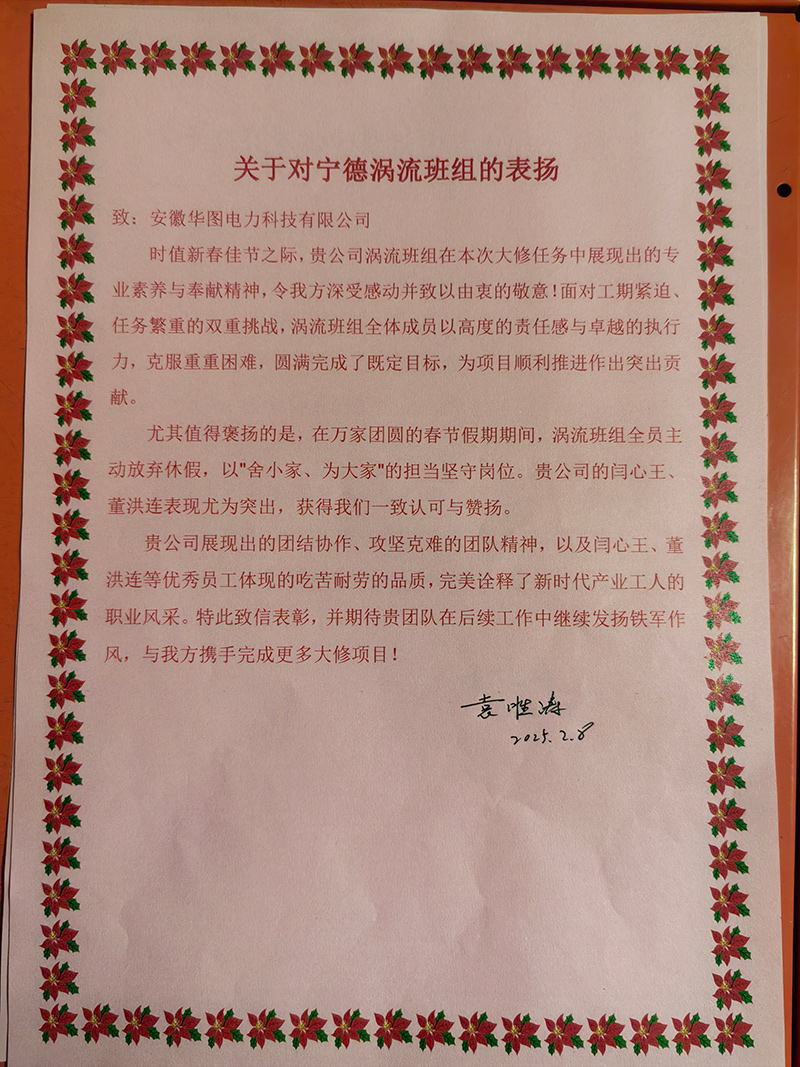 关于对宁德涡流班组的表扬
致：安徽华图电力科技有限公司
时值新春佳节之际，贵公司涡流班组在本次大修任务中展现出的专
业素养与奉献精神，令我方深受感动并致以由衷的敬意！面对工期紧迫、
任务繁重的双重挑战，涡流班组全体成员以高度的责任感与卓越的执行
力，克服重重困难，圆满完成了既定目标，为项目顺利推进作出突出贡
献。
尤其值得褒扬的是，在万家团圆的春节假期期间，涡流班组全员主
动放弃休假，以"舍小家、为大家"的担当坚守岗位。贵公司的闫心王、
董洪连表现尤为突出，获得我们一致认可与赞扬。
贵公司展现出的团结协作、攻坚克难的团队精神，以及闫心王、董
洪连等优秀员工体现的吃苦耐劳的品质，完美诠释了新时代产业工人的
职业风采。特此致信表彰，并期待贵团队在后续工作中继续发扬铁军作
风，与我方携手完成更多大修项目！
袁唯涛
2025.2.8